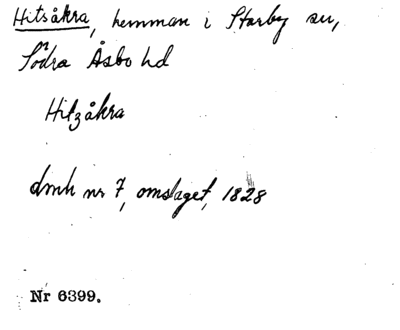 Hitsåkra, hemman i Starby sn,
Södra Åsbo hd
Hitzåkra
dmh nr 7, omslaget, 1828
Nr 6399.